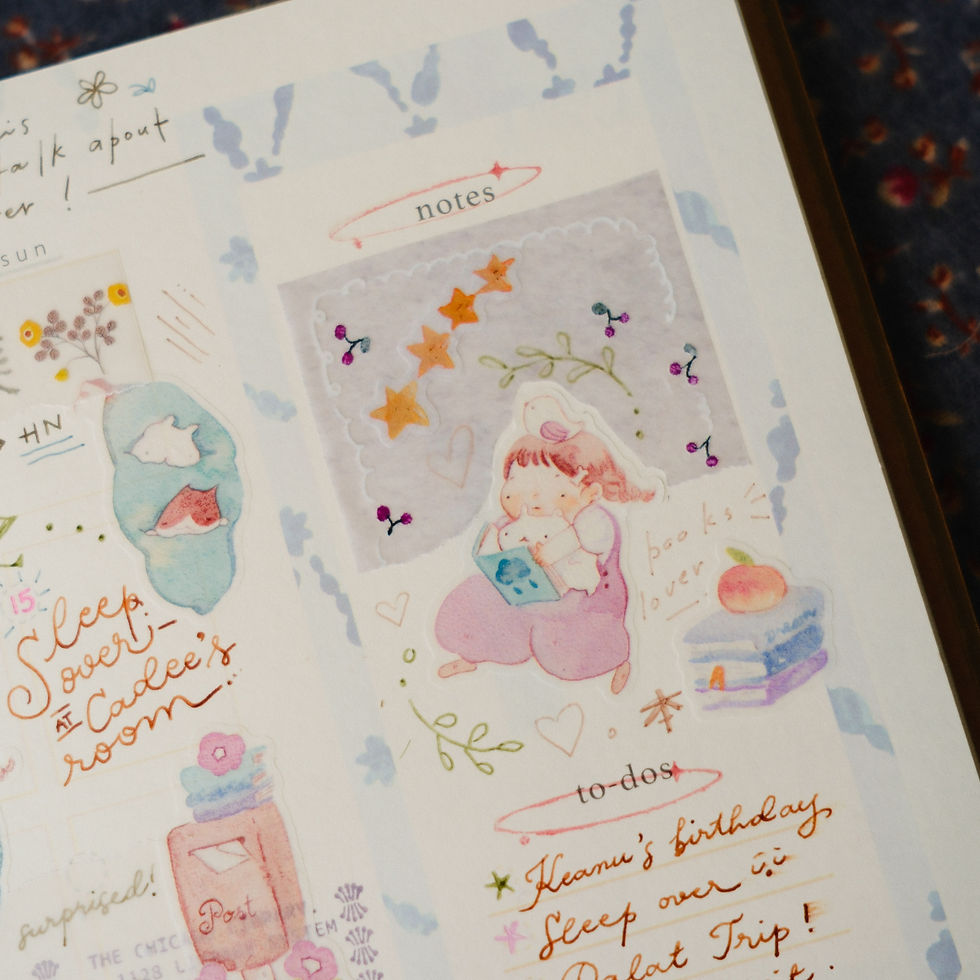 talk about
er!
sun
HN
15
Sleep
over
AT Cadee's
room
surprised!
Post
THE CHIC
1128
notes
books
lover
Dream
to-dos
Keanu's birthday
Sleep over
Dalat Trip!